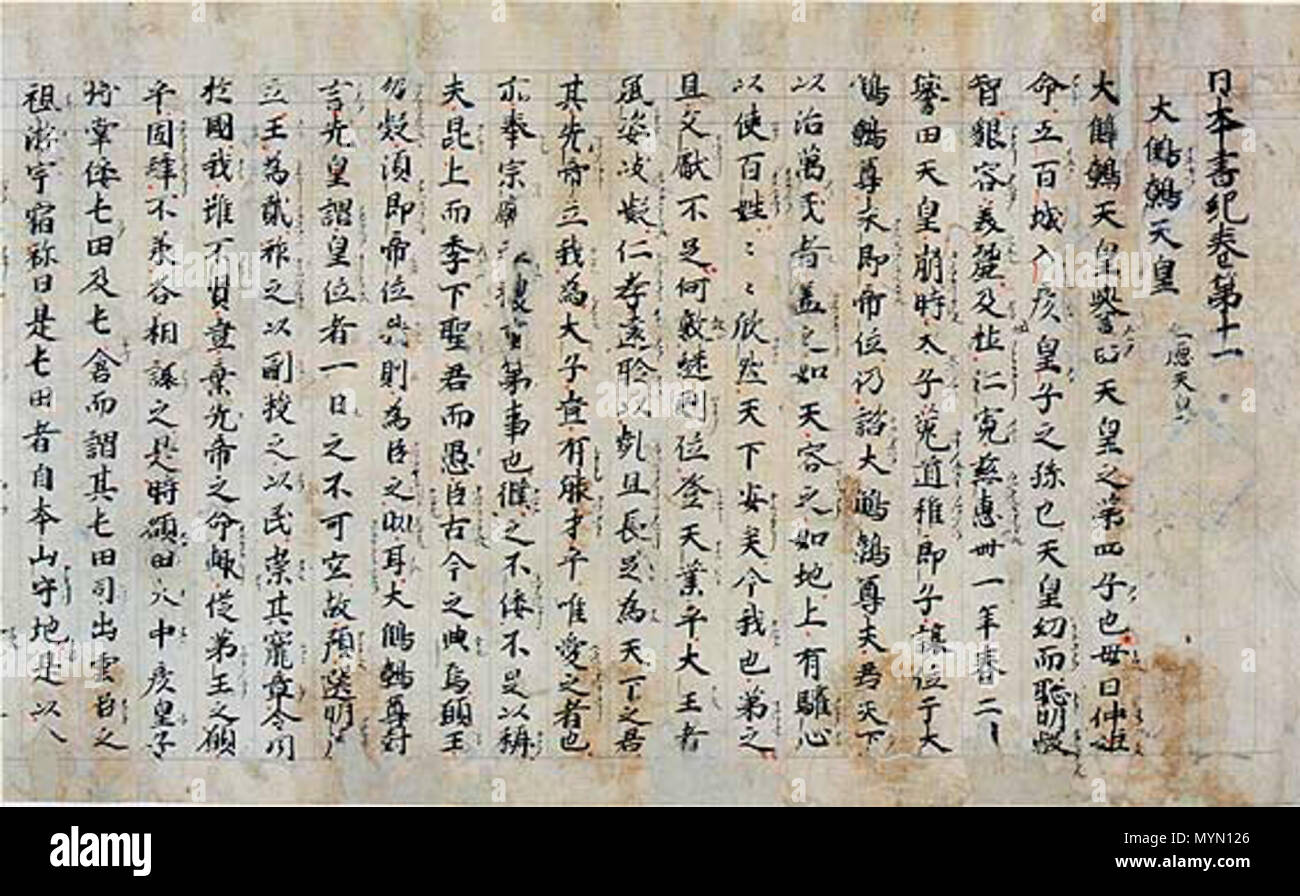 日本書紀卷第十一
大鷦鷯天皇
大鷦鷯天皇譽田天皇之第四子也母曰仲姫
命五百城入彦皇子之孫也天皇幼而聡明叡
智貌容美麗及壮仁寛慈惠卌一年春二
譽田天皇崩時太子菟道稚郎子讓位于大
鷦鷯尊未即帝位仍諮大鷦鷯尊夫君天下
以治萬民者蓋之如天容之如地上有驩心
以使百姓〻〻欣然天下安矣今我也弟之
且文獻不足何敢継嗣位登天業乎大王者
風姿岐嶷仁孝遠聆以齒且長足為天下之君
其先帝立我為太子豈有能才乎唯愛之者也
亦奉宗廟 事也僕之不佞不足以稱
夫昆上而季下聖君而愚臣古今之典焉願王
勿疑須即帝位我則為臣之助耳大鷦鷯尊對
言先皇謂皇位者一日之不可空故預選明
立王為貳祚之以嗣授之以民崇其寵章令聞
於國我雖不賢豈棄先帝之命輙從弟王之願
乎固辭不承各相讓之是時額田大中彦皇子
將掌倭屯田及屯倉而謂其屯田司出雲臣之
祖淤宇宿祢曰是屯田者自本山守地是以
alamy
Image ID: MYN126
www.alamy.com